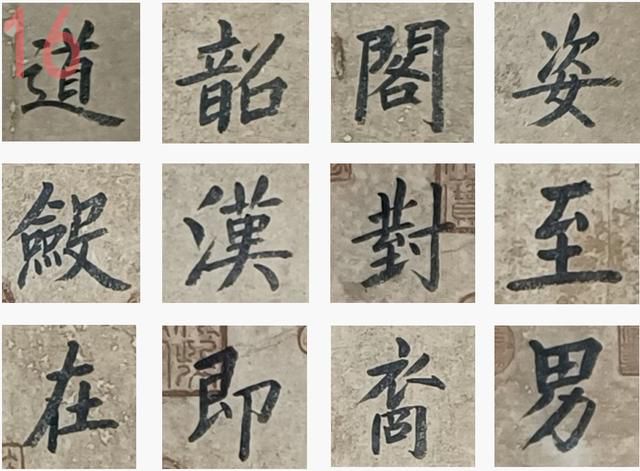 16
道 韶 閣 姿
斂 漢 對 至
在 即 裔 男